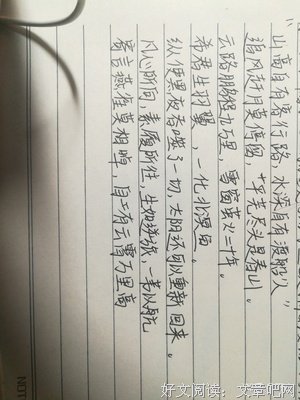 山高自有客行路,水深自有渡船人"
追风赶月莫停留,平芜尽头是春山。
云路鹏程九万里,雪窗萤火二十年。
希君生羽翼,一化北溟鱼。
纵使黑夜吞噬了一切,太阳还可以重新回来。
凡心所向,素履所往,生如逆旅,一苇以航
寄言燕雀莫相啅,自有云霄万里高
NOT
好文阅读:文章吧网